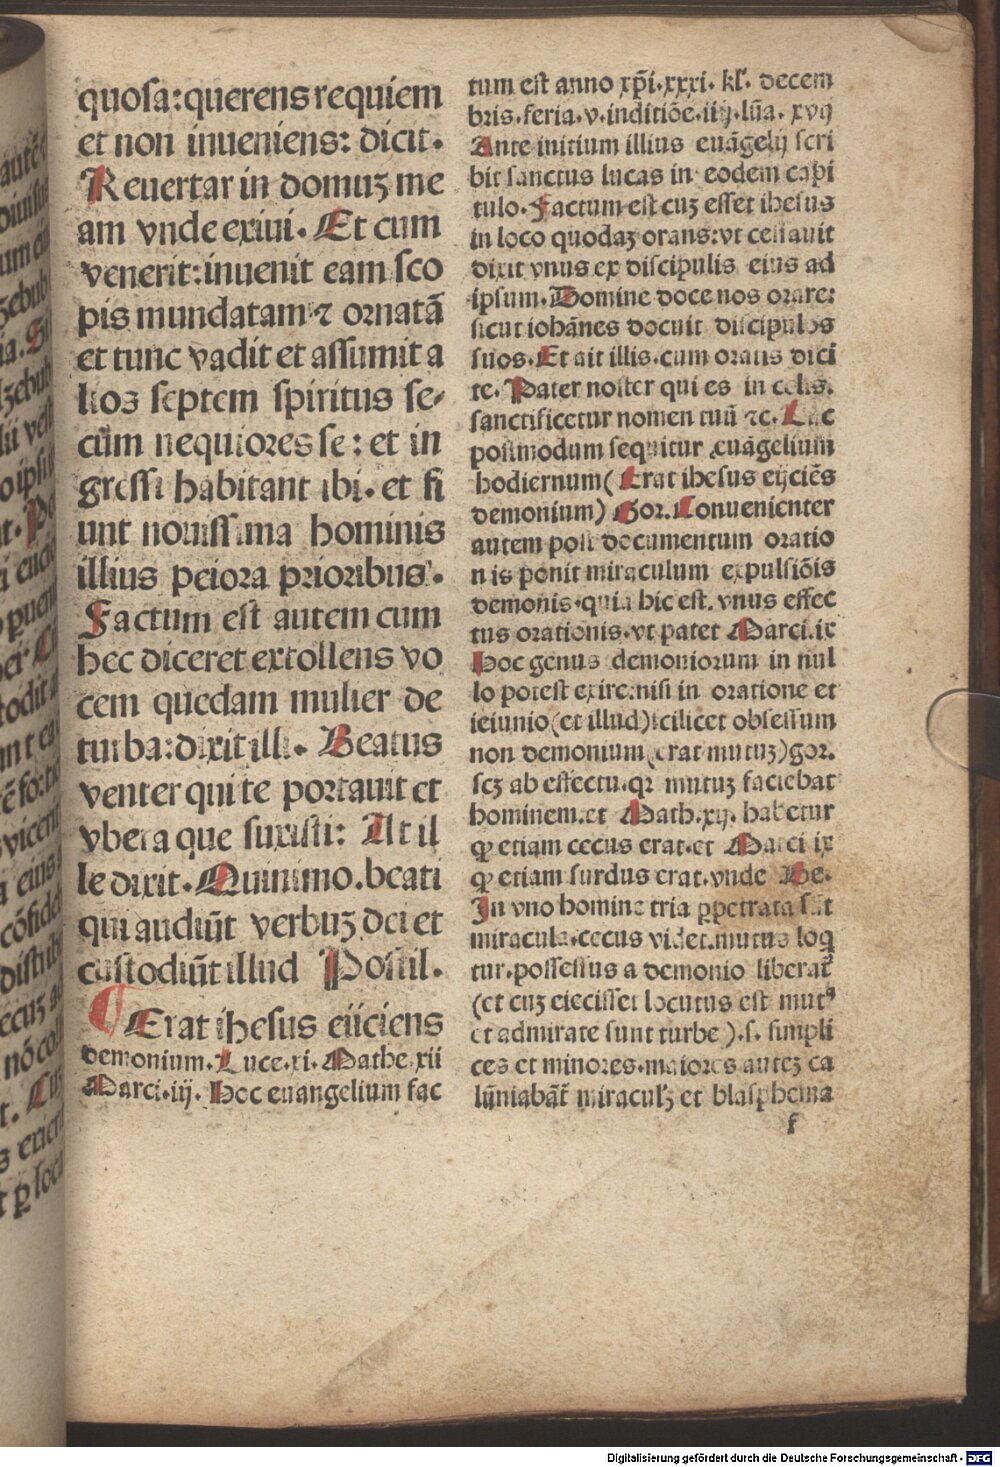 quosa:querens requiem
et non inueniens: dicit.
Reuertar in domuꝫ me
am vnde exiui. Et cum
venerit:inuenit eam sco
pis mundatam ⁊ ornatā
et tunc vadit et assumit a
lios septem spiritus se⸗
cum nequiores se: et in
gressi habitant ibi. et fi
unt nouissima hominis
illius peiora prioribus.
Factum est autem cum
hec diceret extollens vo
cem quedam mulier de
turba:dixit illi. Beatus
venter qui te portauit et
vbera que suxisti: At il
le dixit. Quinimo. beati
qui audiūt verbuꝫ dei et
custodiūt illud Postil.
¶ Erat ihesus eiiciens
demonium. Luce.xi. Mathe.xii
Marci.iij. Hoc euangelium fac
tum est anno xp̄i.xxxi. kl'. decem
bris.feria.v.inditiōe.iiij.lūa.xvij
Ante initium illius euāgelij scri
bit sanctus lucas in eodem capi
tulo. Factum est cuꝫ esset ihesus
in loco quodaꝫ orans:vt cessauit
dixit vnus ex discipulis eius ad
ipsum. Domine doce nos orare:
sicut iohānes docuit discipulos
suos. Et ait illis.cum oratis dici
te. Pater noster qui es in celis.
sanctificetur nomen tuū ⁊c. Luc
postmodum sequitur euāgelium
hodiernum( Erat ihesus eijciēs
demonium) Gor. Conuenienter
autem post documentum oratio
nis ponit miraculum expulsiōis
demonis.quia hic est. vnus effec
tus orationis.vt patet Marci.ix
Hoc genus demoniorum in nul
lo potest exire:nisi in oratione et
ieiunio(et illud)scilicet obsessum
non demonium(erat mutuꝫ)gor.
scꝫ ab effectu.qr mutuꝫ faciebat
hominem.et Math.xij. habetur
ꝙ etiam cecus erat.et Marci ix
ꝙ etiam surdus erat.vnde Be.
In vno homine tria ꝑpetrata sūt
miracula.cecus videt.mutus loq̄
tur.possessus a demonio liberat̄
(et cuꝫ eiecisset locutus est mutꝰ
et admirate sunt turbe ).s. simpli
ces et minores.maiores auteꝫ ca
lūniabāt̄ miracul'ꝫ et blasphema
f
Digitalisierung gefördert durch die Deutsche Forschungsgemeinschaft - DFG